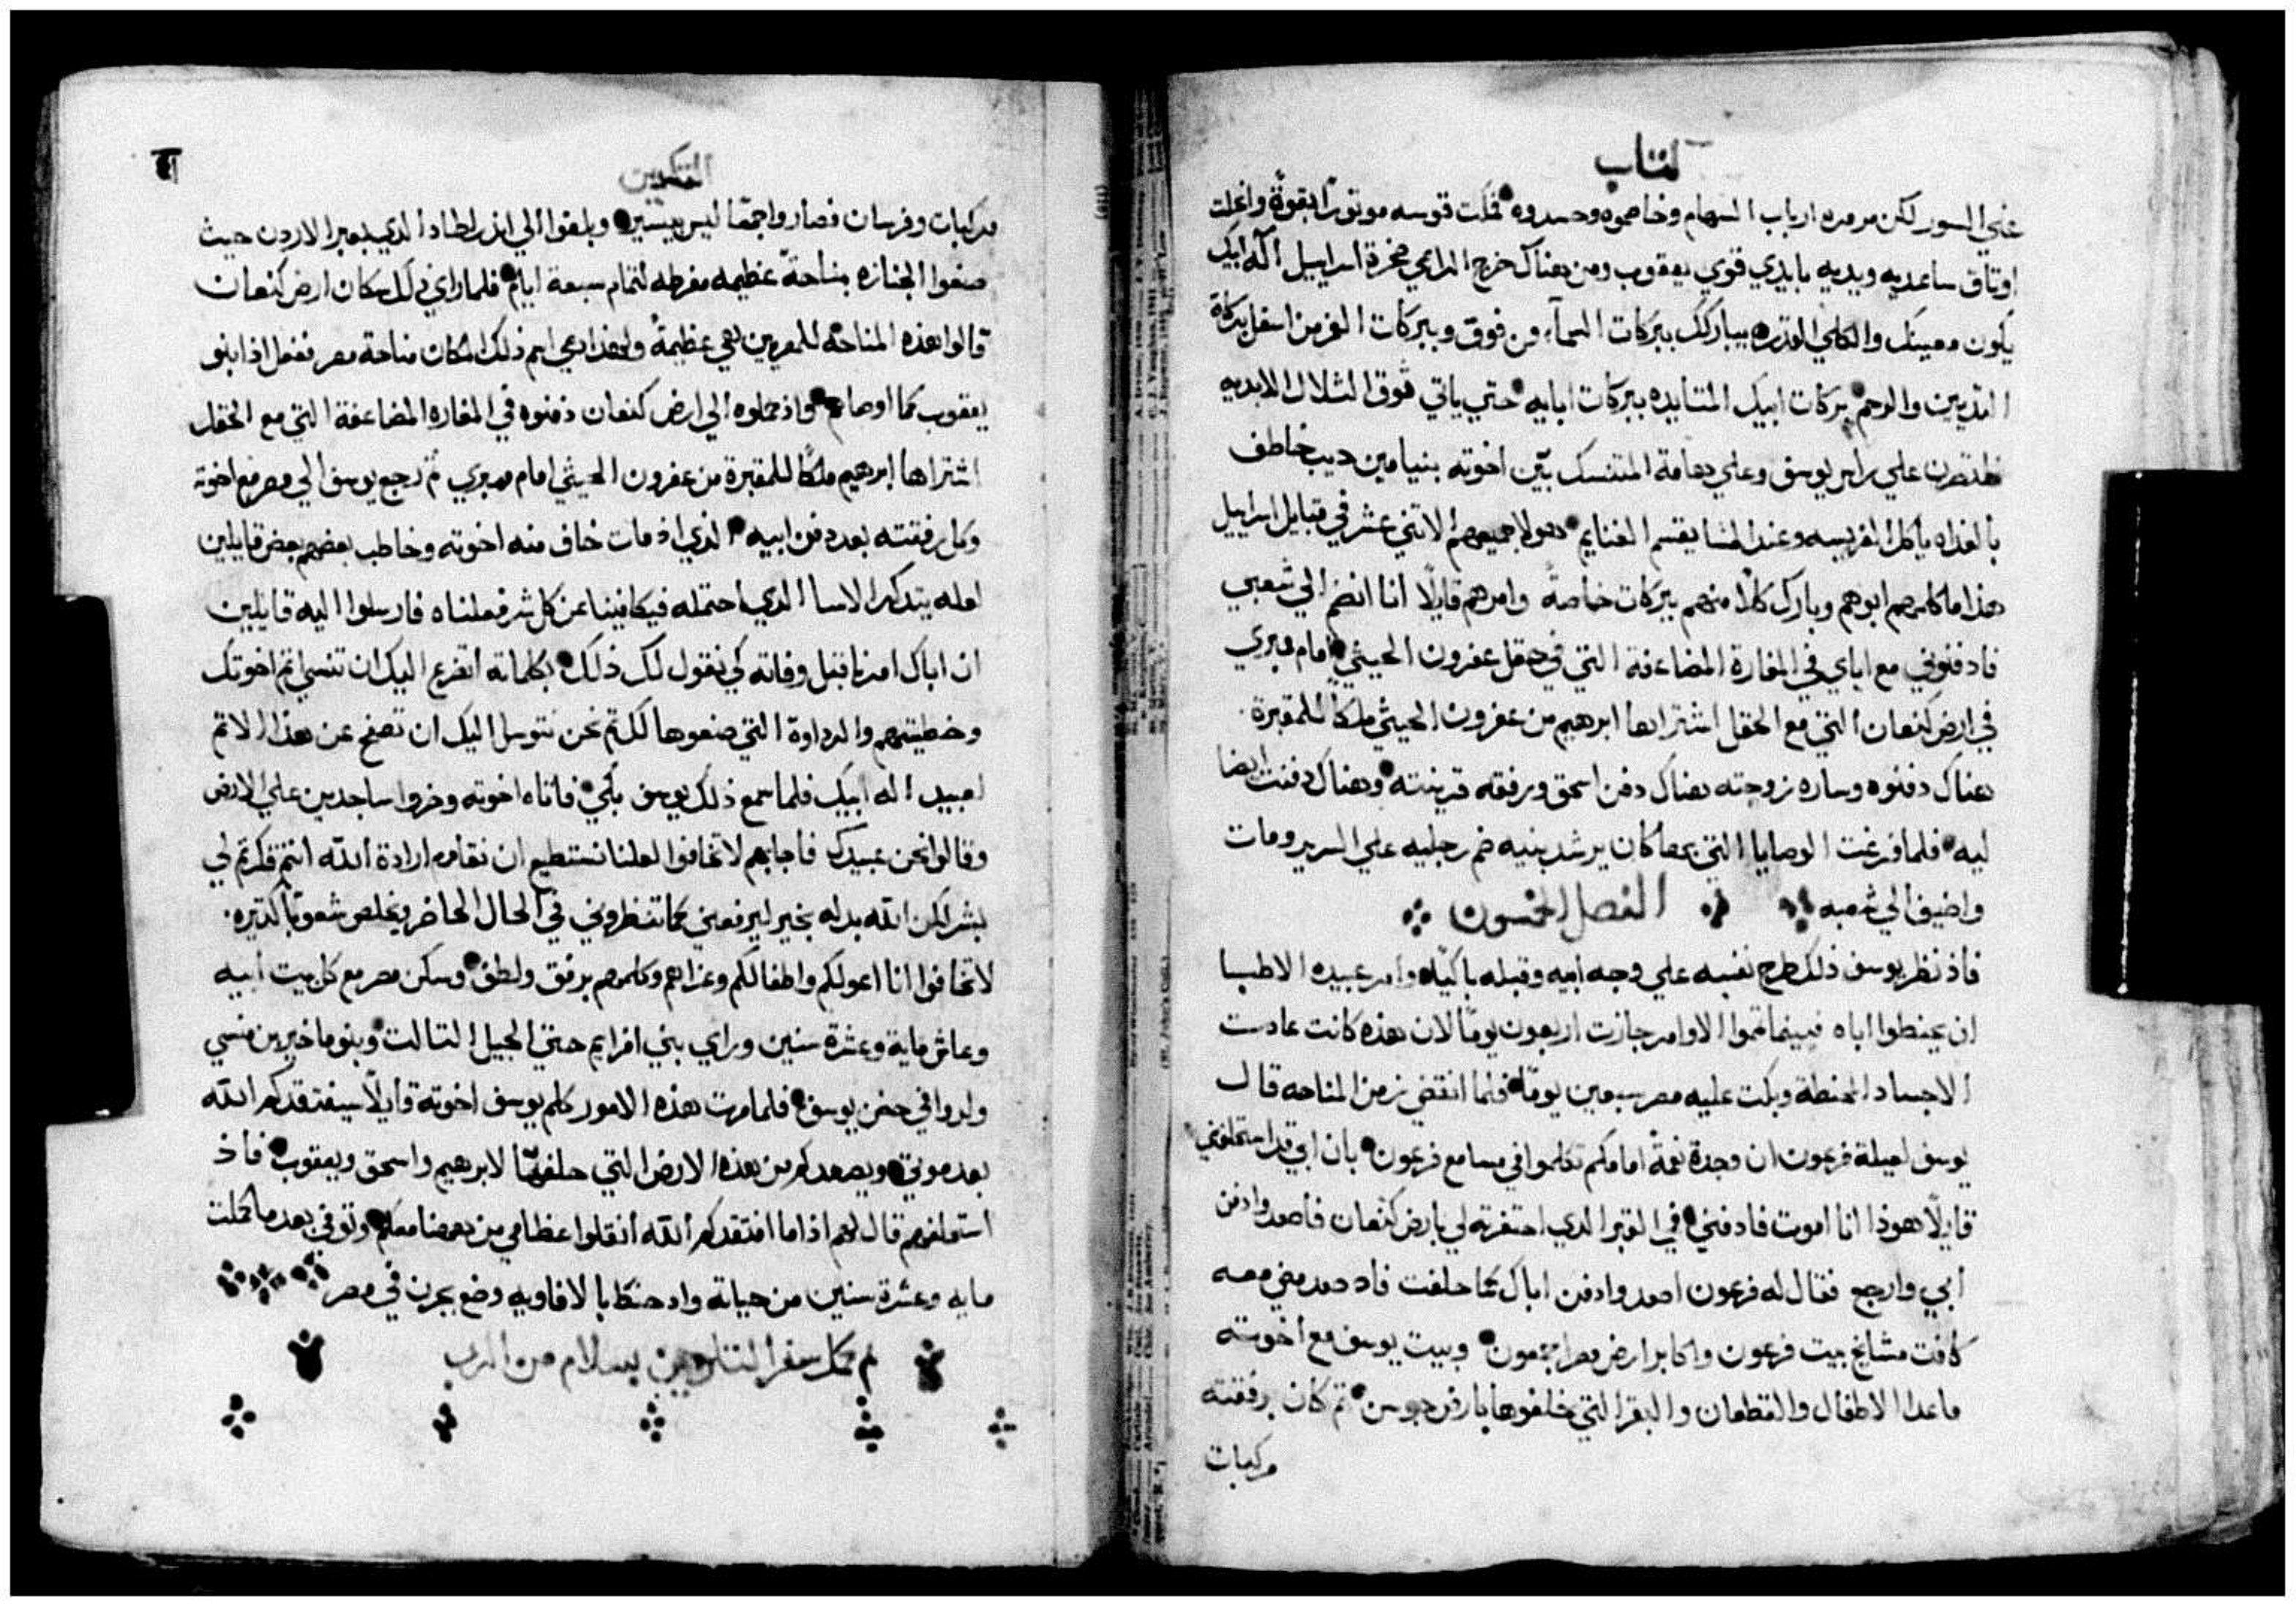 كتاب
علي السور لكن مرمره ارباب السهام وخاصموه وحسدوه فلكت قوسه موتورًا بقوةٍ وانحلت
اوتاق ساعديه ويديه بايدي قوي يعقوب ومن هناك خرج الراعي صخرة اسراييل اله ابيك
يكون معينك والكلي القدره يباركك ببركات السمآء من فوق وببركات الغمر من اسفل ببركاة
الثديين والرحم بركات ابيك المتتايده ببركات ابايه حتي ياتي فوق التلال الابديه
فلتصرن علي راس يوسف وعلي هامة المتنسك بين اخوته بنيامين ديب خاطف
بالغداه ياكل الفريسه وعند المسا يقسم الغنايم هولا جميعهم الاتني عشر في قبايل اسراييل
هذا ما كلمهم ابوهم وبارك كلا منهم ببركات خاصةً وامرهم قايلًا انا انضم الي شعبي
فادفنوني مع اباي في المغارة المضاعفة التي في حقل عفرون الحيثي امام ممبري
في ارض كنعان التي مع الحقل اشتراها ابرهيم من عفرون الحيثي ملكًا للمقبرة
هناك دفنوه وساره زوجته هناك دفن اسحق ورفقه قرينته وهناك دفنت ايضا
ليه فلما فرغت الوصايا التي بها كان يرشد بنيه ضم رجليه علي السرير ومات
واضيف الي شعبه الفصل الخمسون
فاذ نظر يوسف ذلك طرح نفسه علي وجه ابيه وقبله باكيًا وامر عبيده الاطبا
ان يحنطوا اباه فبينما تموا الاوامر جازت اربعون يومًا لان هذه كانت عادت
الاجساد المحنطة وبكت عليه مصر سبعين يومًا فلما انقضي زمن المناحه قال
يوسف لعيلة فرعون ان وجدة نعمةً امامكم تكلموا في مسامع فرعون بان ابي قد استحلفني
قايلًا هوذا انا اموت فادفني في القبر الذي احتفرته لي بارض كنعان فاصعد وادفن
ابي وارجع فقال له فرعون اصعد وادفن اباك كما حلفت فاد صعد مضي معه
كافت مشايخ بيت فرعون واكابر ارض مصر اجمعون وبيت يوسف مع اخوته
ماعدا الاطفال والقطعان والبقر التي خلفوها بارض جوسن تم كان برفقته
مركبات
التكوين
مركبات وفرسان فصاروا جمعًا ليس بيسير وبلغوا الي اندر اطاد الدي بعبر الاردن حيث
صنعوا الجنازه بمناحةً عظيمه مفرطه لتمام سبعة ايام فلما راي ذلك سكان ارض كنعان
قالوا هذه المناحة للمصريين هي عظيمةً ولهذا دعي اسم ذلك المكان مناحة مصر ففعل اذا بنو
يعقوب كما اوصاهم واذ حملوه الي ارض كنعان دفنوه في المغاره المضاعفة التي مع الحقل
اشتراها ابرهيم ملكًا للمقبرة من عفرون الحيثي امام ممبري تم رجع يوسف الي مصر مع اخوته
وكل رفقته بعد دفن ابيه الذي اذ مات خاف منه اخوته وخاطب بعضهم بعض قايلين
لعله يتدكر الاسا الدي احتمله فيكافينا عن كل شر فعلناه فارسلوا اليه قايلين
ان اباك امرنا قبل وفاته كي نقول لك ذلك بكلماته اتضرع اليك ان تنسي اتم اخوتك
وخطيتهم والرداوة التي صنعوها لك تم نحن نتوسل اليك ان تصفح عن هذا الاتم
لعبيد اله ابيك فلما سمع ذلك يوسف بكي فاتاه اخوته وخروا ساجدين علي الارض
وقالوا نحن عبيدك فاجابهم لا تخافوا لعلنا نستطيع ان نقاوم ارادة الله انتم فكرتم لي
بشر لكن الله بدله بخير ليرفعني كما تنظروني في الحال الحاضر ويخلص شعوبًا كتيره
لا تخافوا انا اعولكم واطفالكم وعزاهم وكلمهم برفق ولطف وسكن مصر مع كل بيت ابيه
وعاش ماية وعشرة سنين وراي بني افرايم حتي الجيل التالت وبنو ماخير بن منسي
ولدوا في حضن يوسف فلما مرت هذه الامور كلم يوسف اخوته قايلًا سيفتقدكم الله
بعد موتي ويصعدكم من هذه الارض التي حلف بها لابرهيم واسحق ويعقوب فاذ
استحلفهم قال لهم اذا ما افتقدكم الله انقلوا عظامي من هاهنا معكم وتوفي بعد ما كملت
مايه وعشرة سنين من حياته واد حنط بالافاويه وضع بجرن في مصر
تم وكمل سفر التكوين بسلام من الرب